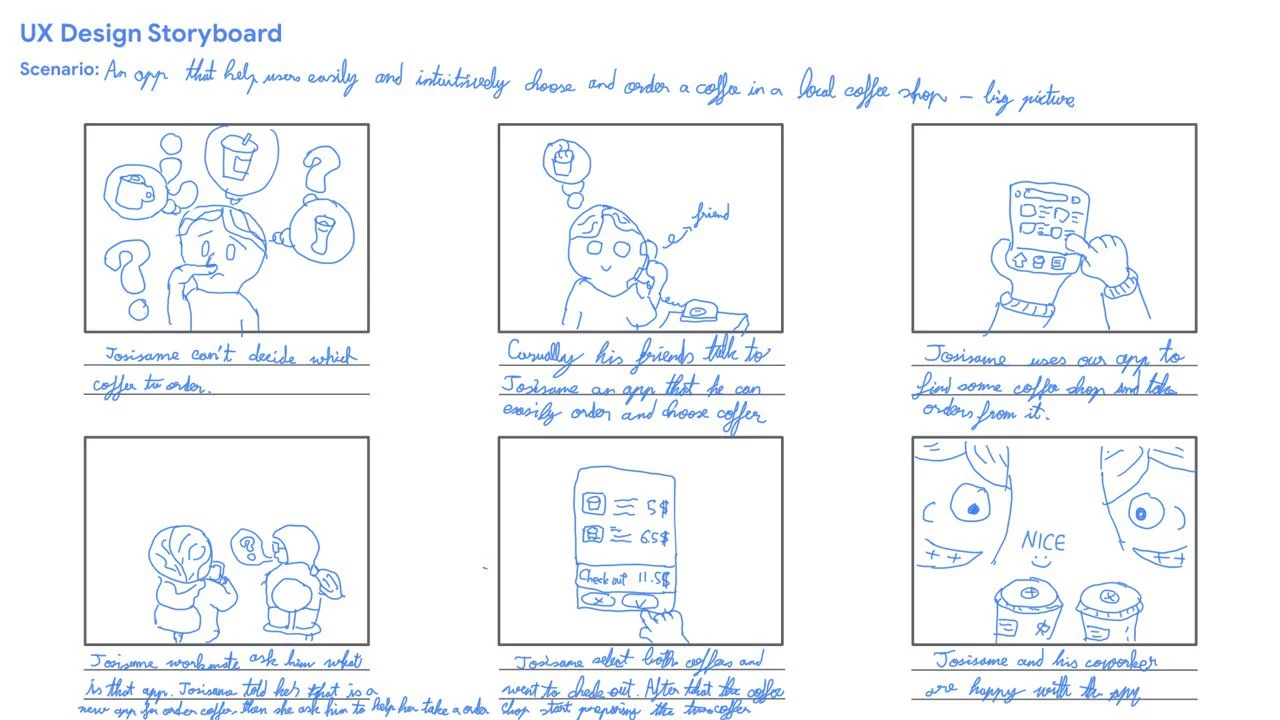 UX Design Storyboard
Scenario: An app that help users easily and intuitively choose and order a coffee in a local coffee shop – big picture
friend
Josisame can't decide which
coffee to order.
Casually his friends talk to
Josisame an app that he can
easily order and choose coffer
Josisame uses our app to
find some coffee shop and take
orders from it.
5$
6.5$
Check out 11.5$
NICE
Josisame workmate ask him what
is that app. Josisame told her that is a
new app for order coffer, then she ask him to help her take a order
Josisame select both coffees and
went to check out. After that the coffee
shop start preparing the two coffer
Josisame and his coworker
are happy with the app